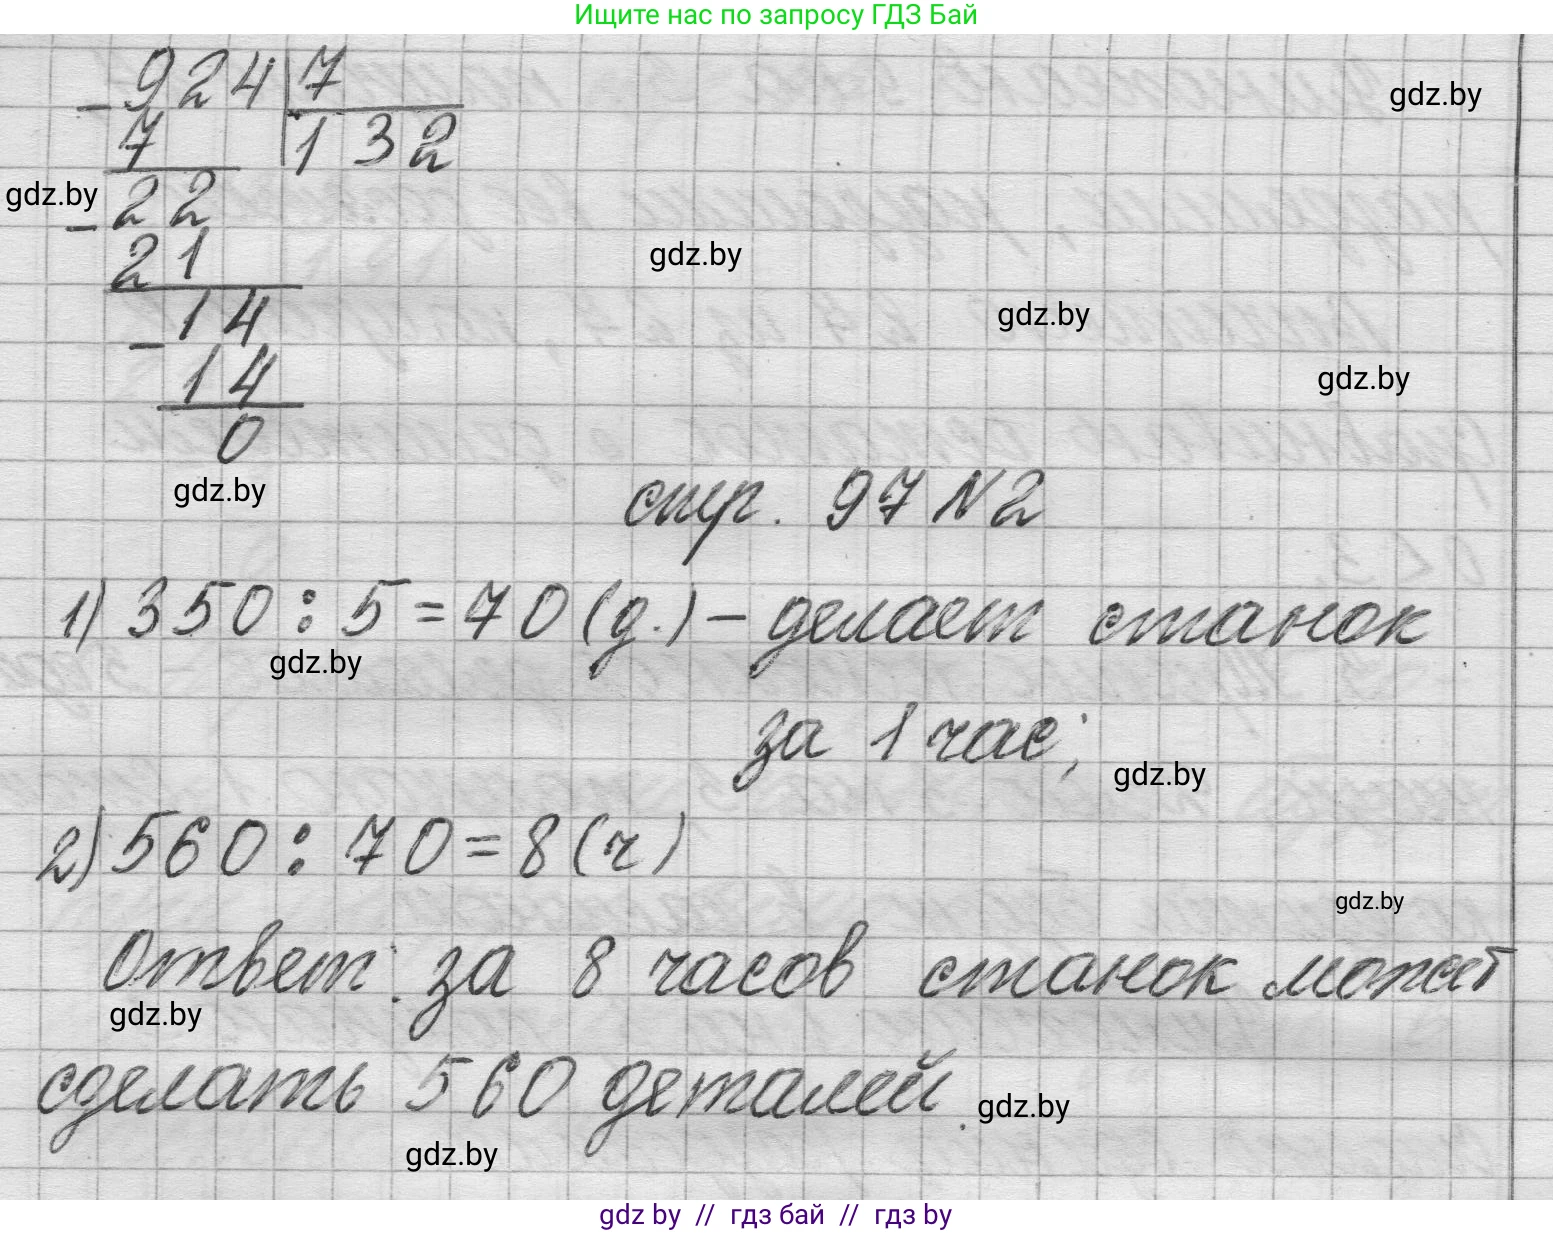 Ищите нас по запросу ГДЗ Бай
- 924 | 7
gdz.by
7 132
gdz.by
- 22
21
gdz.by
- 14
gdz.by
14
gdz.by
0
gdz.by
стр. 97 N 2
1) 350 : 5 = 70 (д.) – делает станок
gdz.by
за 1 час;
gdz.by
2) 560 : 70 = 8 (ч)
gdz.by
Ответ: за 8 часов станок может
gdz.by
сделать 560 деталей.
gdz.by
gdz.by
gdz by // гдз бай // гдз by